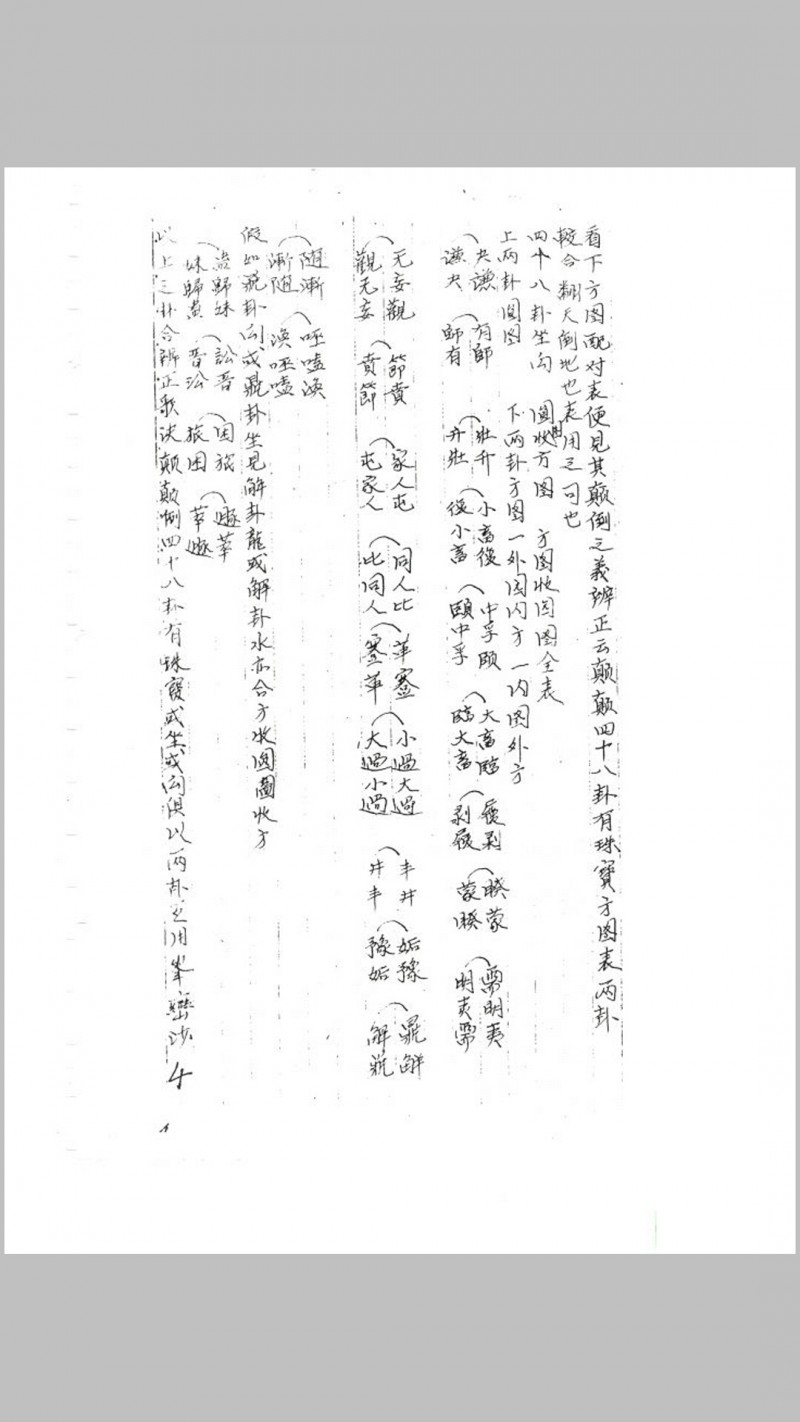 看下方图配对表便見其颠倒之義辨正云颠颠四十八卦有珠寶方图表两卦
較合翻天倒地也表用之可也
四十八卦坐向 圓收方图 方图收圆图全表
上两卦圓图 下两卦方图一外圆内方一内圆外方
夬謙 有師 壯升 小畜復 中孚頤 大畜臨 履剥 睽蒙 需明夷
謙夬 師有 升壯 復小畜 頤中孚 臨大畜 剥履 蒙睽 明夷需
无妄觀 節賁 家人屯 同人比 革蹇 小過大過 丰井 姤豫 鼎解
觀无妄 賁節 屯家人 比同人 蹇革 大過小過 井丰 豫姤 解鼎
随漸 噬嗑渙
漸随 渙噬嗑
假如鼎卦向或鼎卦坐見解卦龍或解卦水亦合方收圆圖收方
蠱歸妹 訟晋 困旅 遯萃
妹歸蠱 晋訟 旅困 萃遯
此上之卦合辨正歌诀颠颠倒四十八卦有珠寶或坐或向俱以两卦之用峯巒沙
4